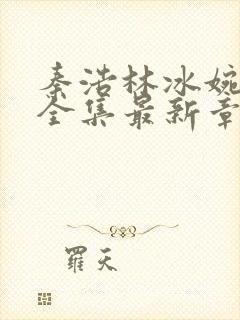 秦浩林冰婉
全集最新章
羅天